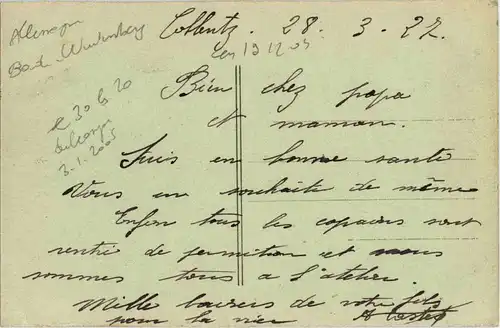 Allemagne
Bad-Wurtemberg
Coblentz. 28. 3. 27.
19 12 05
Bien chez papa
et maman.
Suis en bonne santé
Vous en souhaite de même
Enfin tous les copains sont
rentré de permition et nous
sommes tous a l'atelier.
Mille baisers de votre fils
pour la vie
3-1-2005